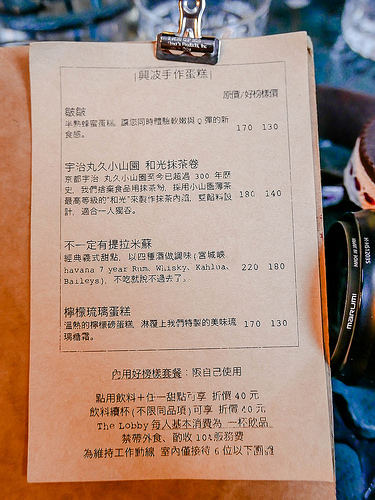 興波手作蛋糕
原價/好榜樣價
皺皺
半熟蜂蜜蛋糕，讓您同時體驗軟嫩與 Q 彈的新
食感。 170 130
宇治丸久小山園 和光抹茶卷
京都宇治 丸久小山園至今已超過 300 年歷
史，我們捨棄食品用抹茶粉，採用小山園薄茶
最高等級的"和光"來製作抹茶內餡，雙餡料設 180 140
計，適合一人獨吞。
不一定有提拉米蘇
經典義式甜點，以四種酒做調味(宮城峽
havana 7 year Rum、Whisky、Kahlua、 220 180
Baileys)，不吃就說不過去了。
檸檬琉璃蛋糕
溫熱的檸檬磅蛋糕，淋覆上我們特製的美味琉 170 130
璃糖霜。
內用好榜樣套餐：限自己使用
點用飲料＋任一甜點可享 折價 40 元
飲料續杯(不限同品項)可享 折價 60 元
The Lobby 每人基本消費為 一杯飲品
禁帶外食、酌收 10%服務費
為維持工作動線 室內僅接待 6 位以下團體
marumi
MADE IN JAPAN